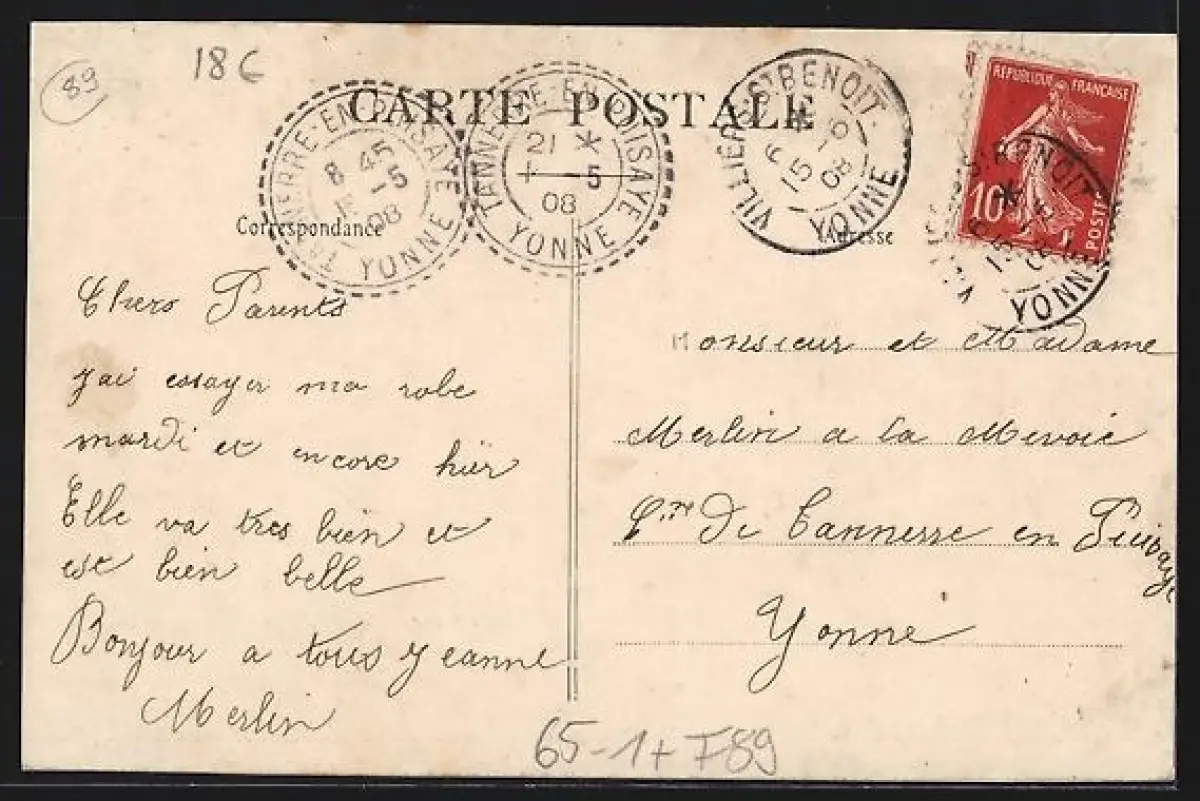 89
18€
CARTE POSTALE
TANNERRE-EN-PUISAYE
8 45
-5
08
YONNE
TANNERRE-EN-PUISAYE
21 *
-5
08
YONNE
VILLIERS-ST BENOIT
*
6 15
-5
08
YONNE
REPUBLIQUE FRANÇAISE
10
POSTES
ST BENOIT
*
YONNE
Correspondance
Adresse
Chers Parents
jai essayer ma robe
mardi et encore hier
Elle va tres bien et
est bien belle
Bonjour a tous Jeanne
Merlin
Monsieur et Madame
Merlin a la Mevoie
Cne De Tannerre en Puisaye
Yonne
65-1+ F89